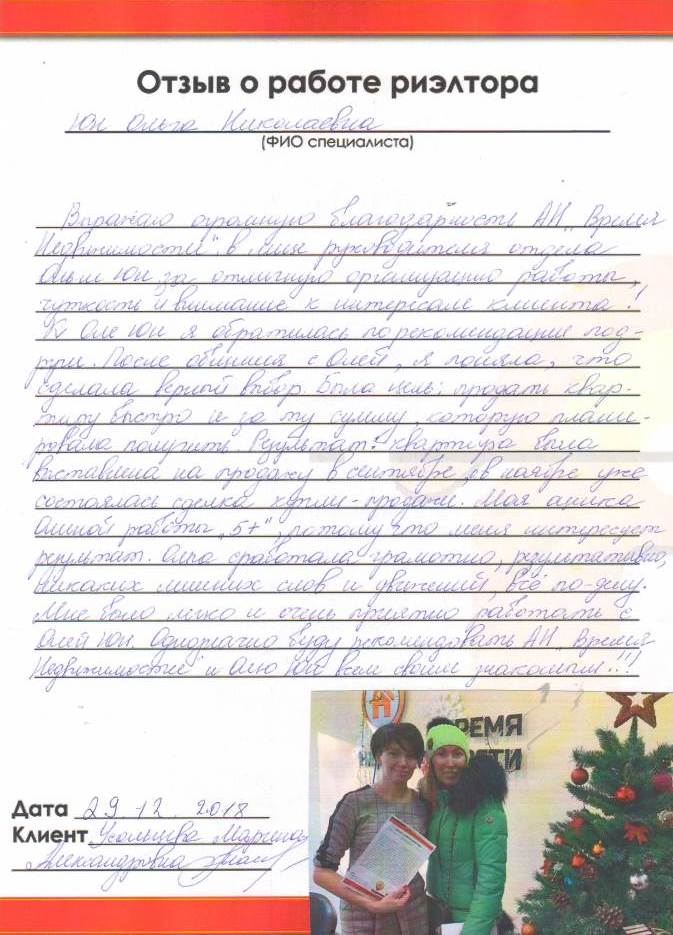 Отзыв о работе риэлтора
Юн Ольга Николаевна
(ФИО специалиста)
Выражаю огромную благодарность АН "Время
Недвижимости" в лице руководителя отдела
Ольги Юн за отличную организацию работы,
чуткость и внимание к интересам клиента!
К Оле Юн я обратилась по рекомендации под-
руги. После общения с Олей, я поняла, что
сделала верный выбор. Была цель: продать квар-
тиру быстро и за ту сумму, которую плани-
ровала получить. Результат: квартира была
выставлена на продажу в сентябре, а в ноябре уже
состоялась сделка купли-продажи. Моя оценка
Олиной работы "5+", потому что меня интересует
результат. Оля сработала грамотно, результативно,
никаких лишних слов и движений, всё по-делу.
Мне было легко и очень приятно работать с
Олей Юн. Однозначно буду рекомендовать АН "Время
Недвижимости" и Олю Юн всем своим знакомым!!!
ВРЕМЯ
Дата 29.12.2018
Клиент Марина
Александровна